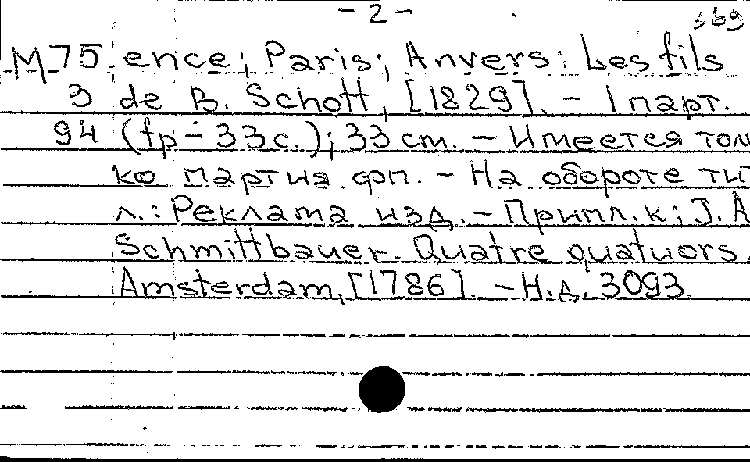 - 2 -
569
М75 ence; Paris; Anvers: Les fils
3 de B. Schott, [1829]. - 1 парт.
94 (fp - 33 с.); 33 cm. - Имеется толь
ко партия фп. - На обороте тит
л.: Реклама изд. - Припл. к: J. A
Schmittbauer. Quatre quatuors.
Amsterdam, [1786]. - Н.д. 3093.